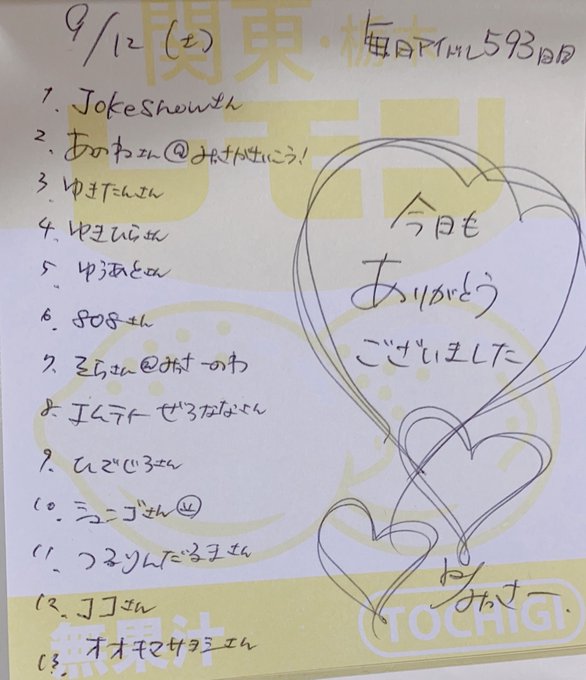 9/12(土)
毎日アイドル593日目
関東・栃木
レモン
1. Jokeshowさん
2. あのねさん@みっさがさいこう!
3. ゆきたんさん
4. ゆきひらさん
5. ゆうあとさん
6. 808さん
7. そらさん@みっさーのわ
8. エムティーぜろななさん
9. ひでじろさん
10. シュニゴさん
11. つるりんだるまさん
12. ココさん
13. オオキマサヨシさん
今日も
ありがとう
ございました
みっさー
無果汁
TOCHIGI